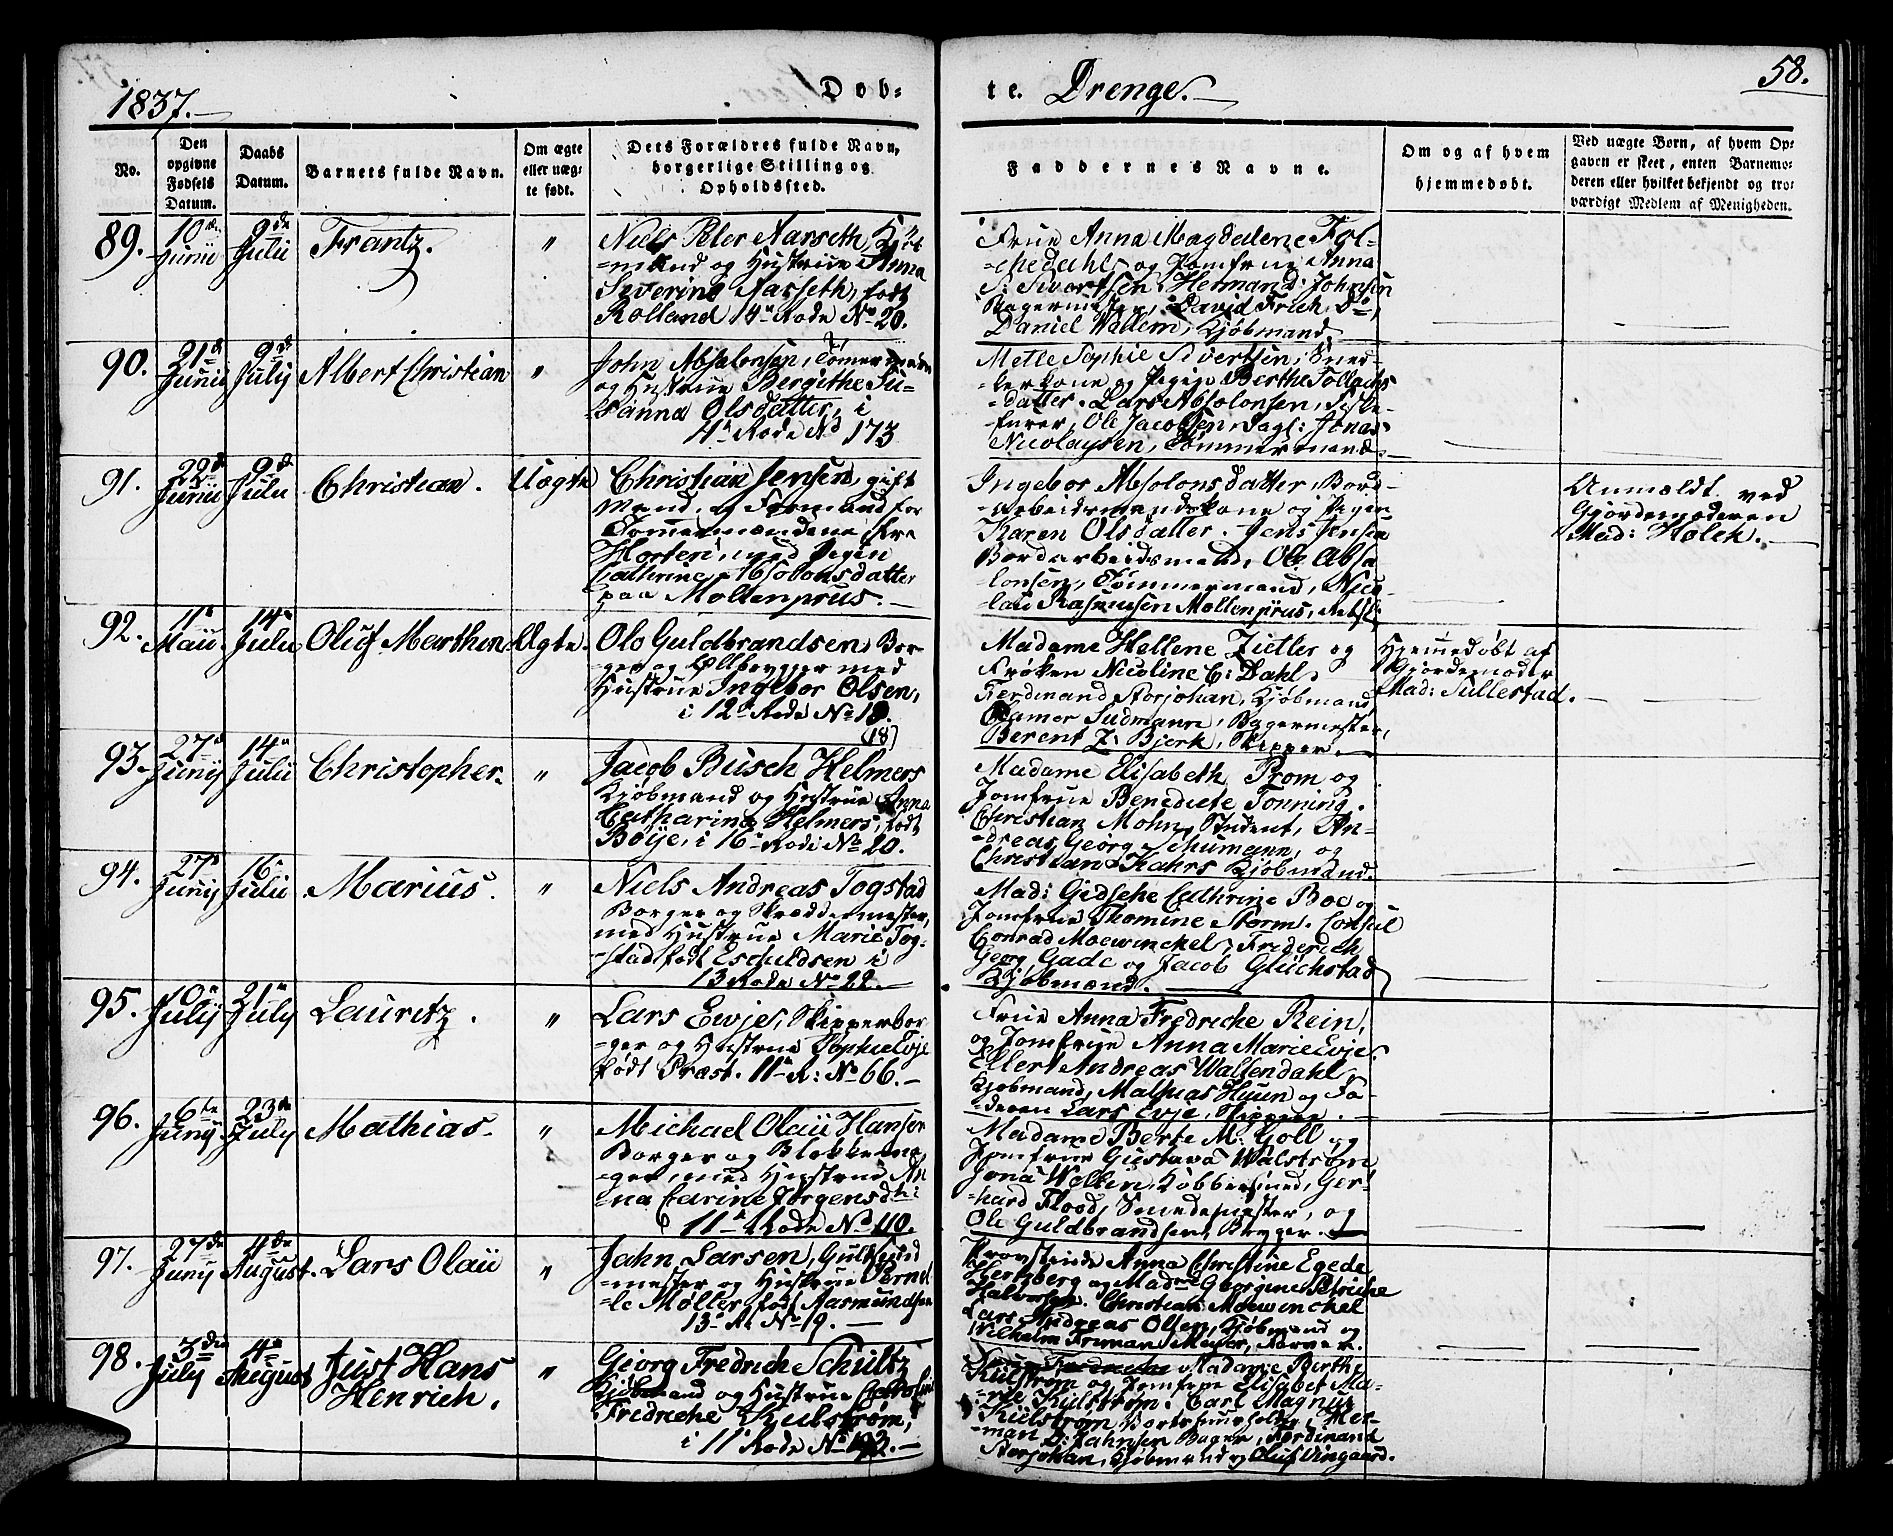 1837.
Døb-
te. Drenge.
58.
No.
Den opgivne Fødsels Datum.
Daabs Datum.
Barnets fulde Navn.
Om ægte eller uægte født.
Dets Forældres fulde Navn, borgerlige Stilling og Opholdssted.
Faddernes Navne.
Om og af hvem hjemmedøbt.
Ved uægte Børn, af hvem Opgaven er skeet, enten Barnemoderen eller hvilket bekjendt og troværdigt Medlem af Menigheden.
89.
10de Junii
9de Julii
Frantz.
"
Niels Peter Aarseth, Kjøb-
-mand og Hustrue Anna
Severine Aarseth, født
Rolland 14de Rode No 20.
Frue Anna Magdelene Fol-
-chedahl, og Jomfrue Anna
S: Sivertsen, Herman D: Johnsen
Bagermester, David Frich Do,
Daniel Wallem, Kjøbmand
90.
21de Junii
9de July
Albert Christian
"
John Absalonsen, Tømermand
og Hustrue Bergithe Su-
-sanna Olsdatter, i
4de Rode No 173
Mette Sophie Sivertsen, Sned-
-kerkone og Pigen Berthe Tollachs
-datter. Lars Absolonsen, Fiske-
fører, Ole Jacobsen, Dagl: Jonas
Nicolaysen, Tømmermand.
91.
22de Junii
9de Julii
Christian.
Uægte
Christian Jensen, gift
Mand, og Formand for
Tømmermændene fra
Horten, med Pigen
Cathrine Absolonsdatter
paa Møllenpriis.
Ingebor Absolonsdatter, Bord-
-arbeidsmandskone og Pigen
Karen Olsdatter. Jens Jensen
Bordarbeidsmand, Ole Abso
lonsen, Tømmermand, Nico
lai Rasmussen Møllenpriis,
Anmeldt ved
Gjordemoderen
Mad: Holck.
92.
11te Maii
14de Julii
Oluf Marthin
Ægte.
Ole Guldbrandsen, Bor-
-ger og Ølbrygger med
Hustrue Ingebor Olsen,
i 12te Rode No 19.
(18)
Madame Hellene Zietler og
Frøken Nicoline C: Dahl,
Ferdinand Storjohan, Kjøbmand
Clamer Sudmann, Bagermester,
Berent Z: Bjerk, Skipper.
Hjemmedøbt af
Gjordemoder
Mad: Sullestad.
93.
27de Junij
14de Julii
Christopher.
"
Jacob Busch Helmers
Kjøbmand og Hustrue Anna
Catharina Helmers, født
Böÿe, i 16de Rode No 20.
Madame Elisabeth Prom og
Jomfrue Benedicte Tonning,
Christian Mohn, Student, An-
-dreas Georg Schumann, og
Christian Kahrs Kjøbmænd.
94.
27de Junij
16de Julii
Marius.
"
Niels Andreas Togstad
Borger og Skræddermester,
med Hustrue Marie Tog-
-stad født Eschildsen i
13 Rode No 22.
Mad: Gidsche Cathrine Boe og
Jomfrue Thomine Storm. Consul
Conrad Moewinckel, Friderich
Georg Gade og Jacob Glückstad
Kjøbmænd.
95.
10de July
21de July
Lauritz.
"
Lars Evje, Skipperbor-
-ger og Hustrue Sophie Evje
født Præst. 11te R: No 66.
Frue Anna Fredriche Rein,
og Jomfrue Anna Marie Evje.
Ellert Andreas Wallendahl,
Kjøbmand, Mathias Huun og Fa-
-deren Lars Evje, Skipper.
96.
6te Junij
23de July
Mathias.
"
Michael Olaii Hansen
Borger og Blokkema-
-ger, med Hustrue An
na Carine Jørgensdtr:
i 11te Rode No 110.
Madame Berte M: Goll og
Jomfrue Gustava Walstrøm
Jona Wollin, Kobbersmed, Ger-
-hard Flood, Smedemester, og
Ole Guldbrandsen, Brygger.
97.
27de Junij
4de August.
Lars Olaii
"
Jahn Larsen, Guldsmed
-mester og Hustrue Pernel
-le Møller, født Aasmundsen
13de R: No 19.
Provstinde Anna Christine Egede
Hertzberg og Madme Georgine Petriche
Halvorsen. Christian Moewinckel
Lars Andreas Olsen, Kjøbmænd og
Wilhelm Friman Meyer, Farver.
98.
3die July
4de August
Just Hans
Henrich.
"
Georg Fredriche Schultz
Kjøbmand og Hustrue Caroline
Fredriche Kjulstrøm,
i 11te Rode No 192.
Madame Birthe
Külstrøm og Jomfrue Elisabet Ma-
-rie Külstrøm. Carl Magnus
Külstrøm, Her-
-man D: Jahnsen Bager, Ferdinand
Storjohan, Kjøbmænd og Oluf Vingaard.